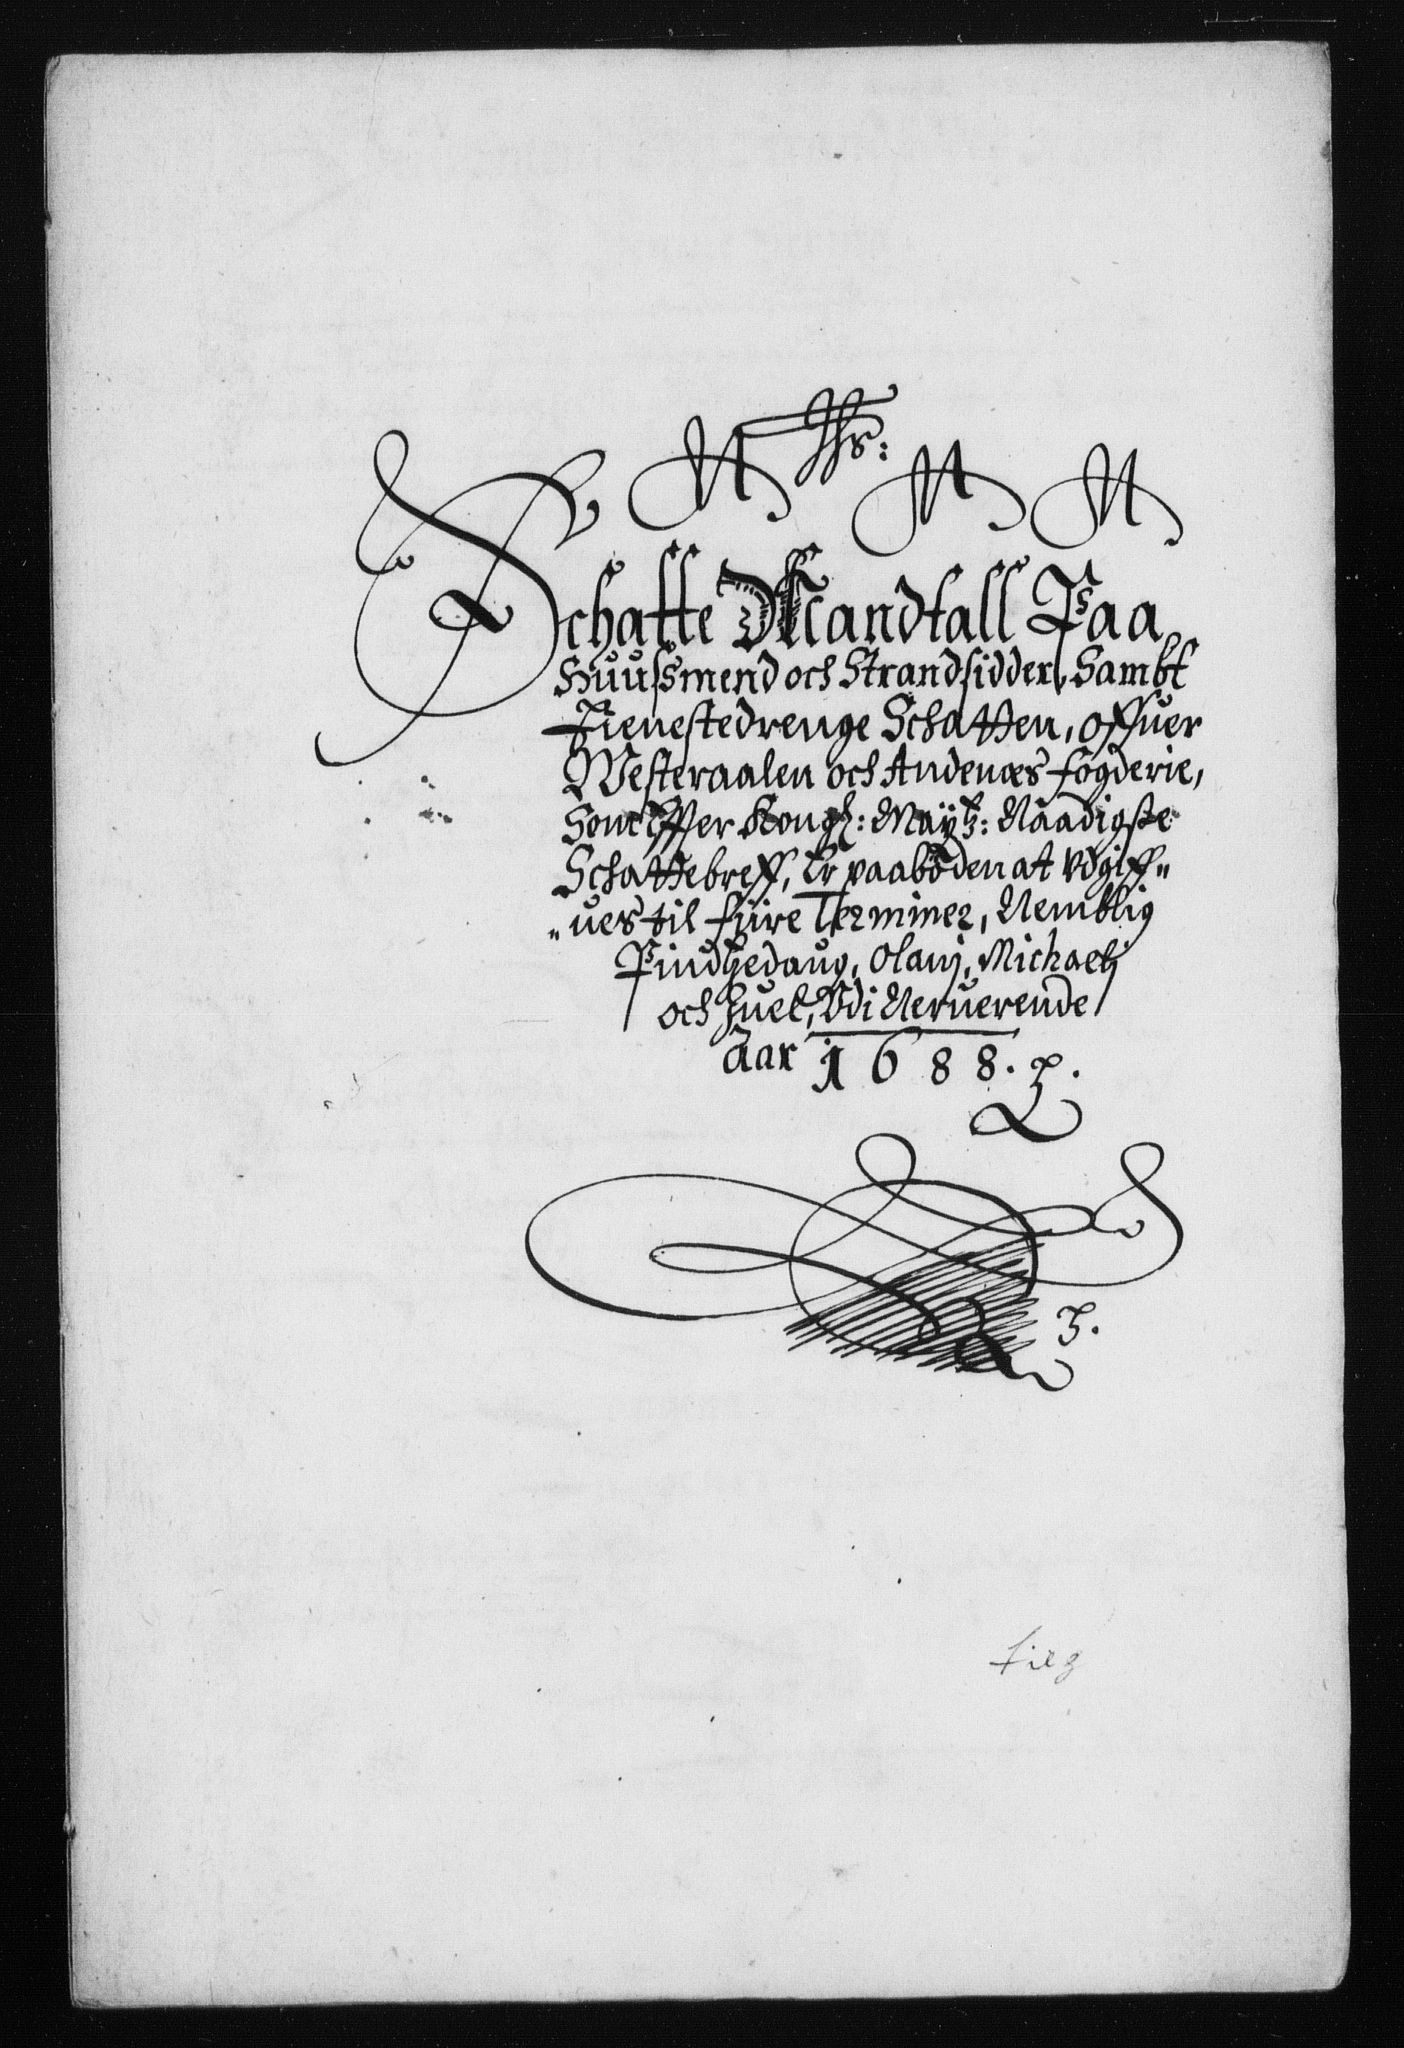 Schatte Mandtall Paa
Huusmend och Strandsidder, Sambt
Tienestedrenge Schatten, offuer
Westeraalen och Andenæs fogderie,
Som effter Kongl: Maÿtz: Naadigste
Schattebreff, Er paaböden at vdgiff"
"ues til fiire Terminer, Nemblig
Pindtzedaug, Olanj, Michaelj
och Juel, Vdi Neruerende
Aar 1688.